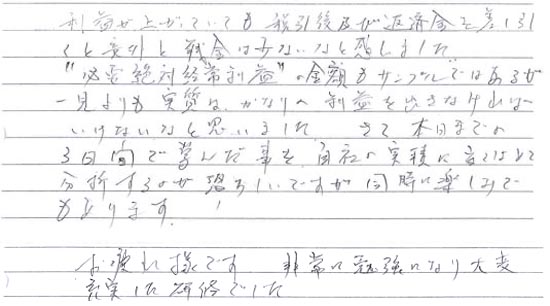 利益が上がっていても税引後及び返済金を差し引
くと意外と残金は少ないなと感じました
"必要絶対経常利益"の金額もサンプルではあるが
一見よりも実質は、かなりの利益を出さなければ
いけないなと思いました。 さて 本日までの
3日間で学んだ事を、自社の実績に
分析するのが恐ろしいですが同時に楽しみで
もあります。
お疲れ様です 非常に勉強になり大変
充実した研修でした